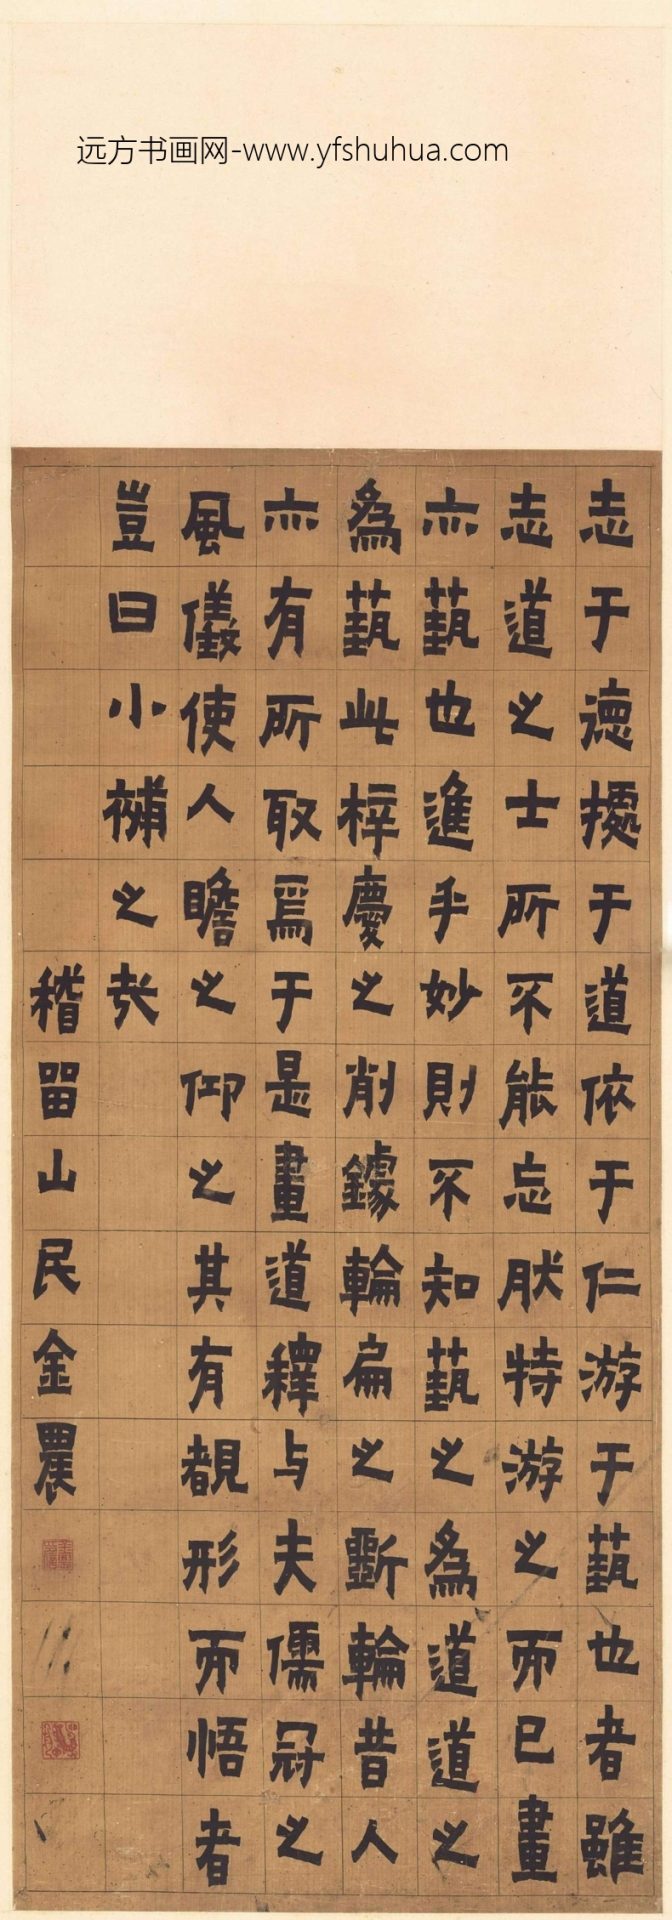 远方书画网-www.yfshuhua.com
志于德據于道依于仁游于藝也者雖
志道之士所不能忘肰特游之而已畫
亦藝也進乎妙則不知藝之為道道之
為藝此梓慶之削鐻輪扁之斲輪昔人
亦有所取焉于是畫道釋与夫儒冠之
風儀使人瞻之仰之其有覩形而悟者
豈曰小補之哉
稽留山民金農